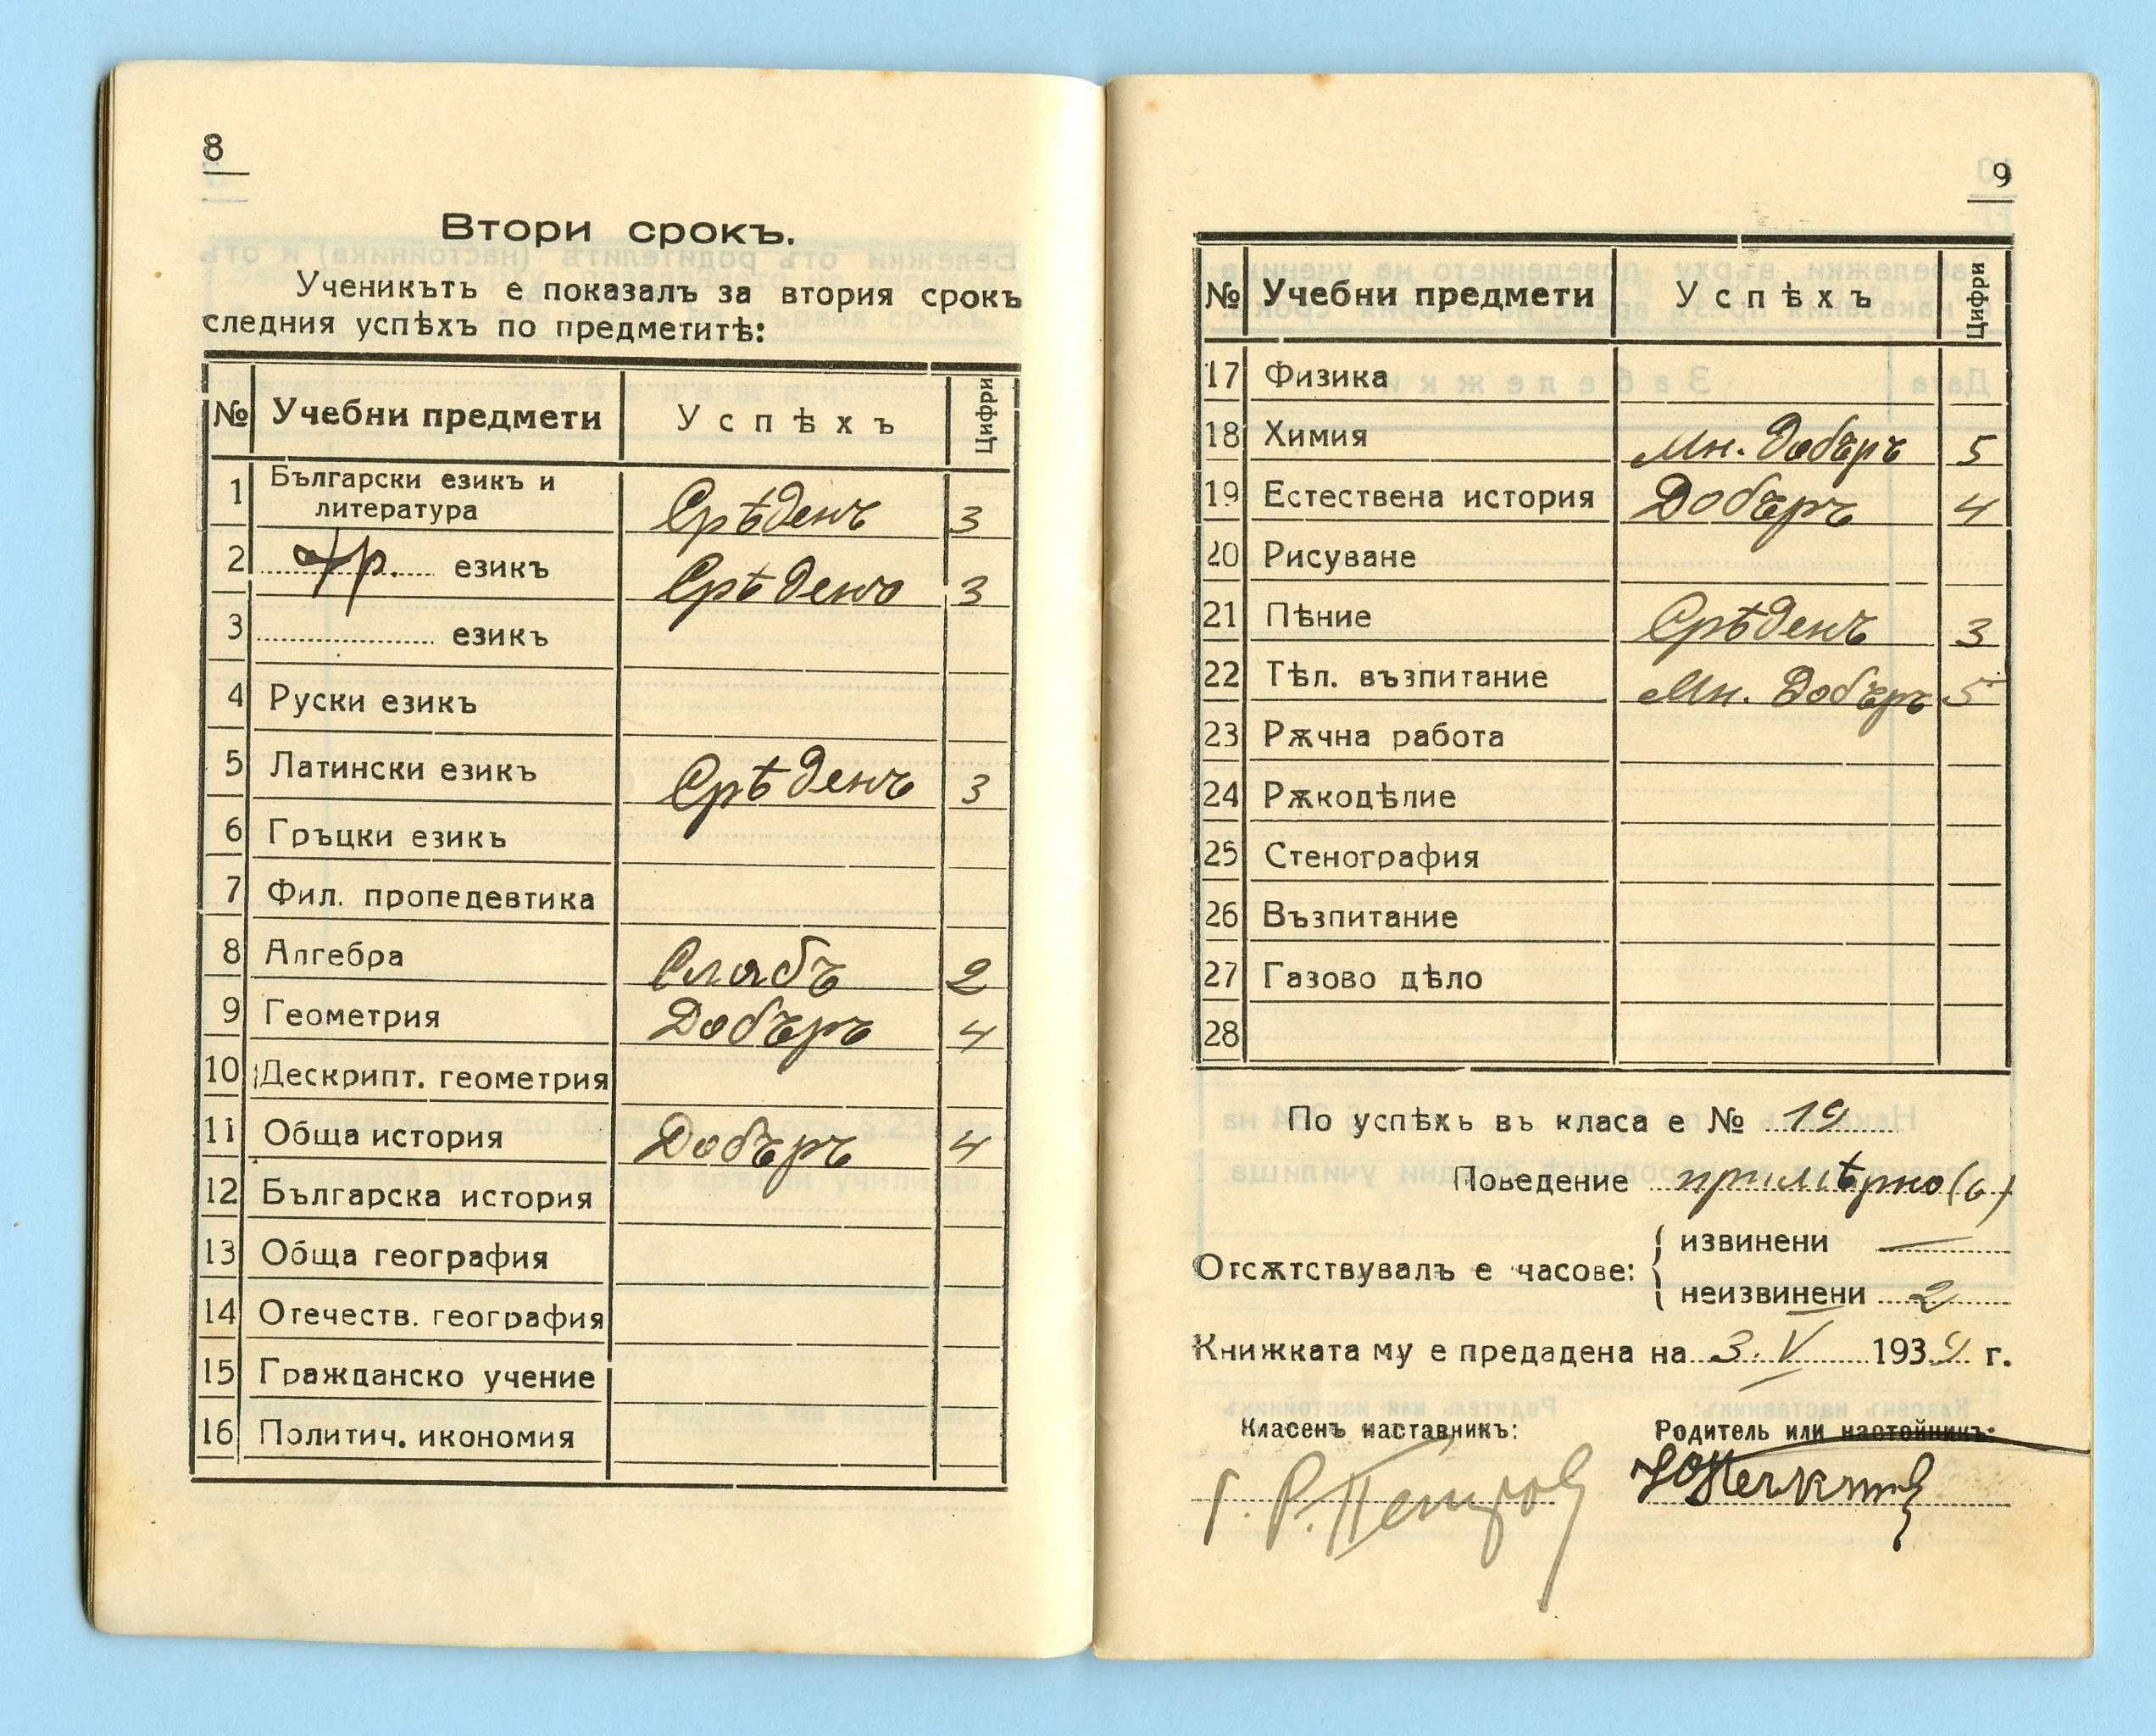 8
Втори срокъ.
Ученикътъ е показалъ за втория срокъ
следния успѣхъ по предметитѣ:
№ Учебни предмети Успѣхъ Цифри
1 Български езикъ и литература Срѣденъ 3
2 фр. езикъ Срѣденъ 3
3 езикъ
4 Руски езикъ
5 Латински езикъ Срѣденъ 3
6 Гръцки езикъ
7 Фил. пропедевтика
8 Алгебра Слабъ 2
9 Геометрия Добъръ 4
10 Дескрипт. геометрия
11 Обща история Добъръ 4
12 Българска история
13 Обща география
14 Отечеств. география
15 Гражданско учение
16 Политич. икономия
9
№ Учебни предмети Успѣхъ Цифри
17 Физика
18 Химия Мн. Добъръ 5
19 Естествена история Добъръ 4
20 Рисуване
21 Пѣние Срѣденъ 3
22 Тѣл. възпитание Мн. Добъръ 5
23 Рѫчна работа
24 Рѫкодѣлие
25 Стенография
26 Възпитание
27 Газово дѣло
28
По успѣхъ въ класа е № 19
Поведение примѣрно (6)
Отсѫтствувалъ е часове: { извинени —
неизвинени 2
Книжката му е предадена на 3. V 1939 г.
Класенъ наставникъ: Родитель или настойникъ:
Г. Р. Петров